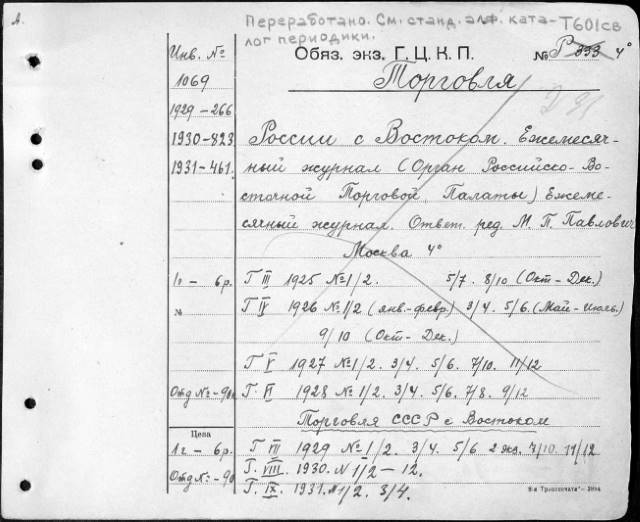 А.
Переработано. См. станд. алф. ката- Т601св
лог периодики.
Инв. № Обяз. экз. Г.Ц.К.П. № Р 333 4°
1069 Торговля
1929-266
1930-823 России с Востоком. Ежемесяч-
1931-461. ный журнал (Орган Российско-Во-
сточной Торговой Палаты) Ежеме-
сячный журнал. Ответ. ред. М. П. Павлович
Москва 4°
1г - 6р. Г III 1925 №1/2. 5/7. 8/10 (Окт-Дек.)
№ Г IV 1926 №1/2 (янв-февр.) 3/4. 5/6. (Май-Июнь.)
9/10 (Окт-Дек.)
Г V 1927 №1/2. 3/4. 5/6. 7/10. 11/12
Отд № - 90к Г. VI 1928 № 1/2. 3/4. 5/6. 7/8. 9/12
Торговля СССР с Востоком
Цена
1г - 6р. Г VII 1929 № 1/2. 3/4. 5/6 2 экз. 7/10. 11/12
Отд № - 90 Г. VIII. 1930. № 1/2-12.
Г. IX. 1931. №1/2. 3/4.